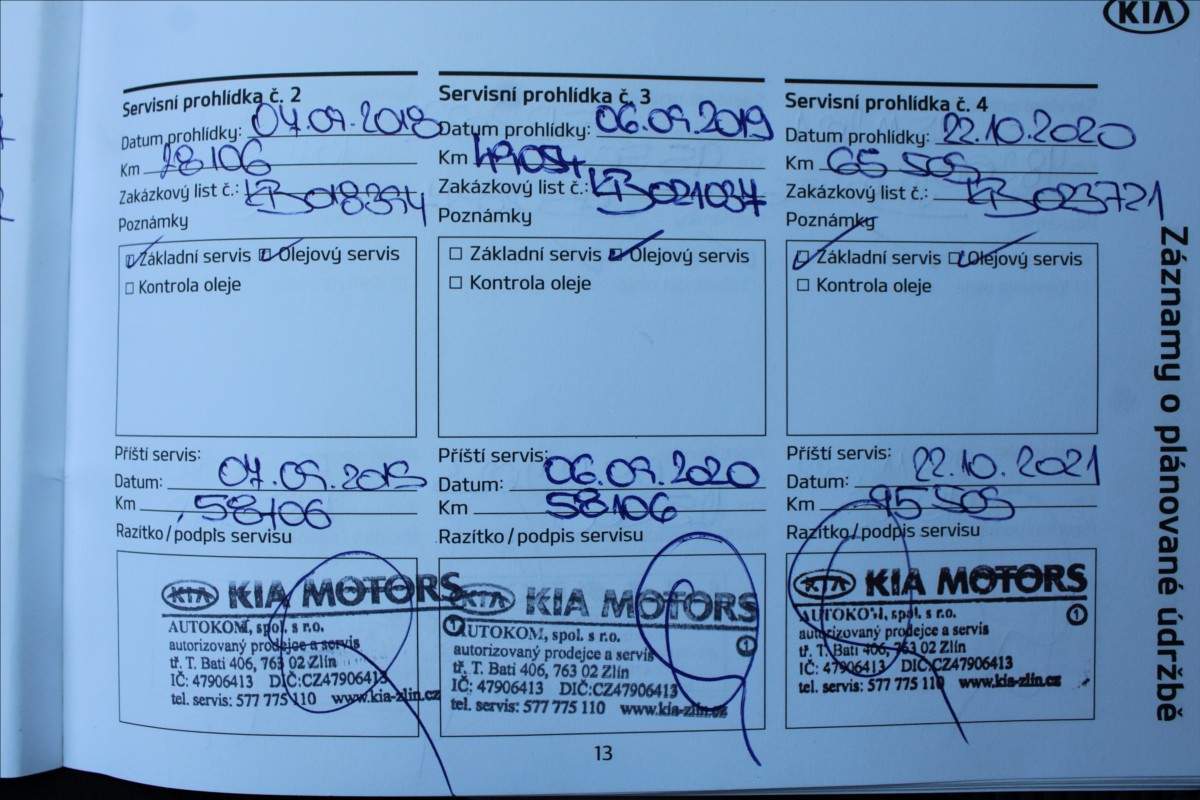 KIA
Servisní prohlídka č. 2
Datum prohlídky: 04.09.2018
Km 28106
Zakázkový list č.: KB018394
Poznámky
Základní servis Olejový servis
Kontrola oleje
Příští servis:
Datum: 07.09.2019
Km 58106
Razítko/podpis servisu
KIA KIA MOTORS
AUTOKOM, spol. s r.o.
autorizovaný prodejce a servis
tř. T. Bati 406, 763 02 Zlín
IČ: 47906413 DIČ:CZ47906413
tel. servis: 577 775 110 www.kia-zlin.cz
1
Servisní prohlídka č. 3
Datum prohlídky: 06.09.2019
Km 49054
Zakázkový list č.: KB021037
Poznámky
Základní servis Olejový servis
Kontrola oleje
Příští servis:
Datum: 06.09.2020
Km 58106
Razítko/podpis servisu
KIA KIA MOTORS
AUTOKOM, spol. s r.o.
autorizovaný prodejce a servis
tř. T. Bati 406, 763 02 Zlín
IČ: 47906413 DIČ:CZ47906413
tel. servis: 577 775 110 www.kia-zlin.cz
1
Servisní prohlídka č. 4
Datum prohlídky: 22.10.2020
Km 65 505
Zakázkový list č.: KB023721
Poznámky
Základní servis Olejový servis
Kontrola oleje
Příští servis:
Datum: 22.10.2021
Km 95 505
Razítko/podpis servisu
KIA KIA MOTORS
AUTOKOM, spol. s r.o.
autorizovaný prodejce a servis
tř. T. Bati 406, 763 02 Zlín
IČ: 47906413 DIČ:CZ47906413
tel. servis: 577 775 110 www.kia-zlin.cz
1
Záznamy o plánované údržbě
13